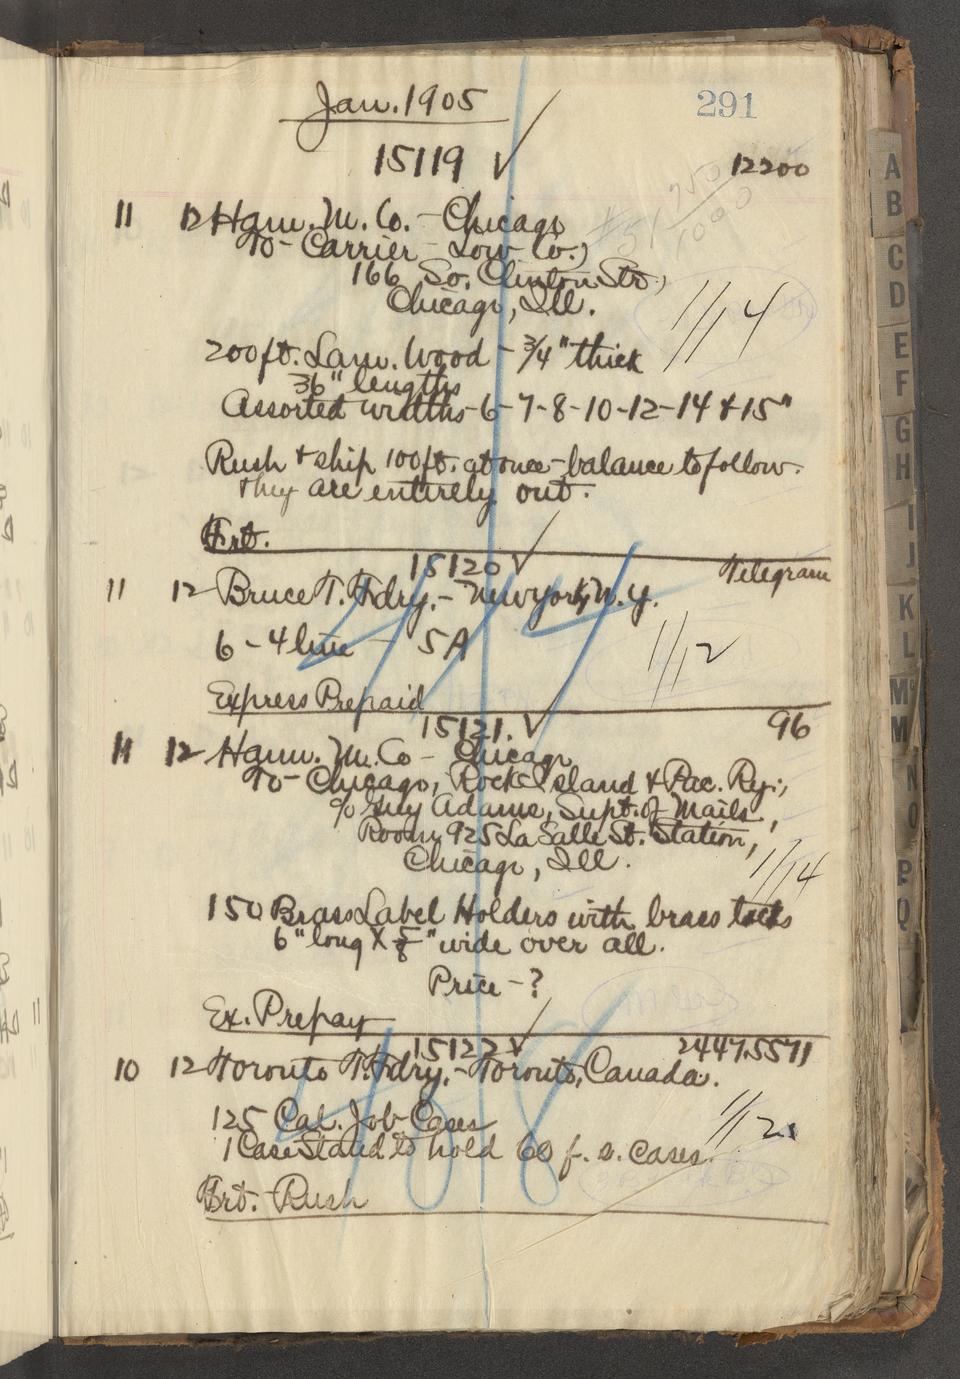 Jan. 1905
291
15119 ✓
12200
11 12 Ham. M. Co. - Chicago
To - Carrier - Low Co.,
166 So. Clinton Str.,
Chicago, Ill.
1/14
200 ft. Lam. Wood - 3/4" thick
36" lengths
Assorted widths - 6 - 7 - 8 - 10 - 12 - 14 + 15"
Rush + ship 100 ft. at once - balance to follow.
They are entirely out.
Frt.
15120 ✓
Telegram
11 12 Bruce T. Fdry. - New York, N.Y.
6 - 4 line - 5A
1/12
Express Prepaid
15121. ✓
96
11 12 Ham. M. Co - Chicago
To - Chicago, Rock Island + Pac. Ry.,
% Guy Adams, Supt. of Mails,
Room 925 La Salle St. Station,
Chicago, Ill.
1/14
150 Brass Label Holders with brass tacks
6" long X 5/8" wide over all.
Price - ?
Ex. Prepay
15122 ✓
10 12 Toronto T. Fdry. - Toronto, Canada.
125 Cal. Job Cases
1 Case Stand to hold 60 f. s. cases.
Frt. - Rush
A
B
C
D
E
F
G
H
I
J
K
L
Mc
M
N
O
P
Q